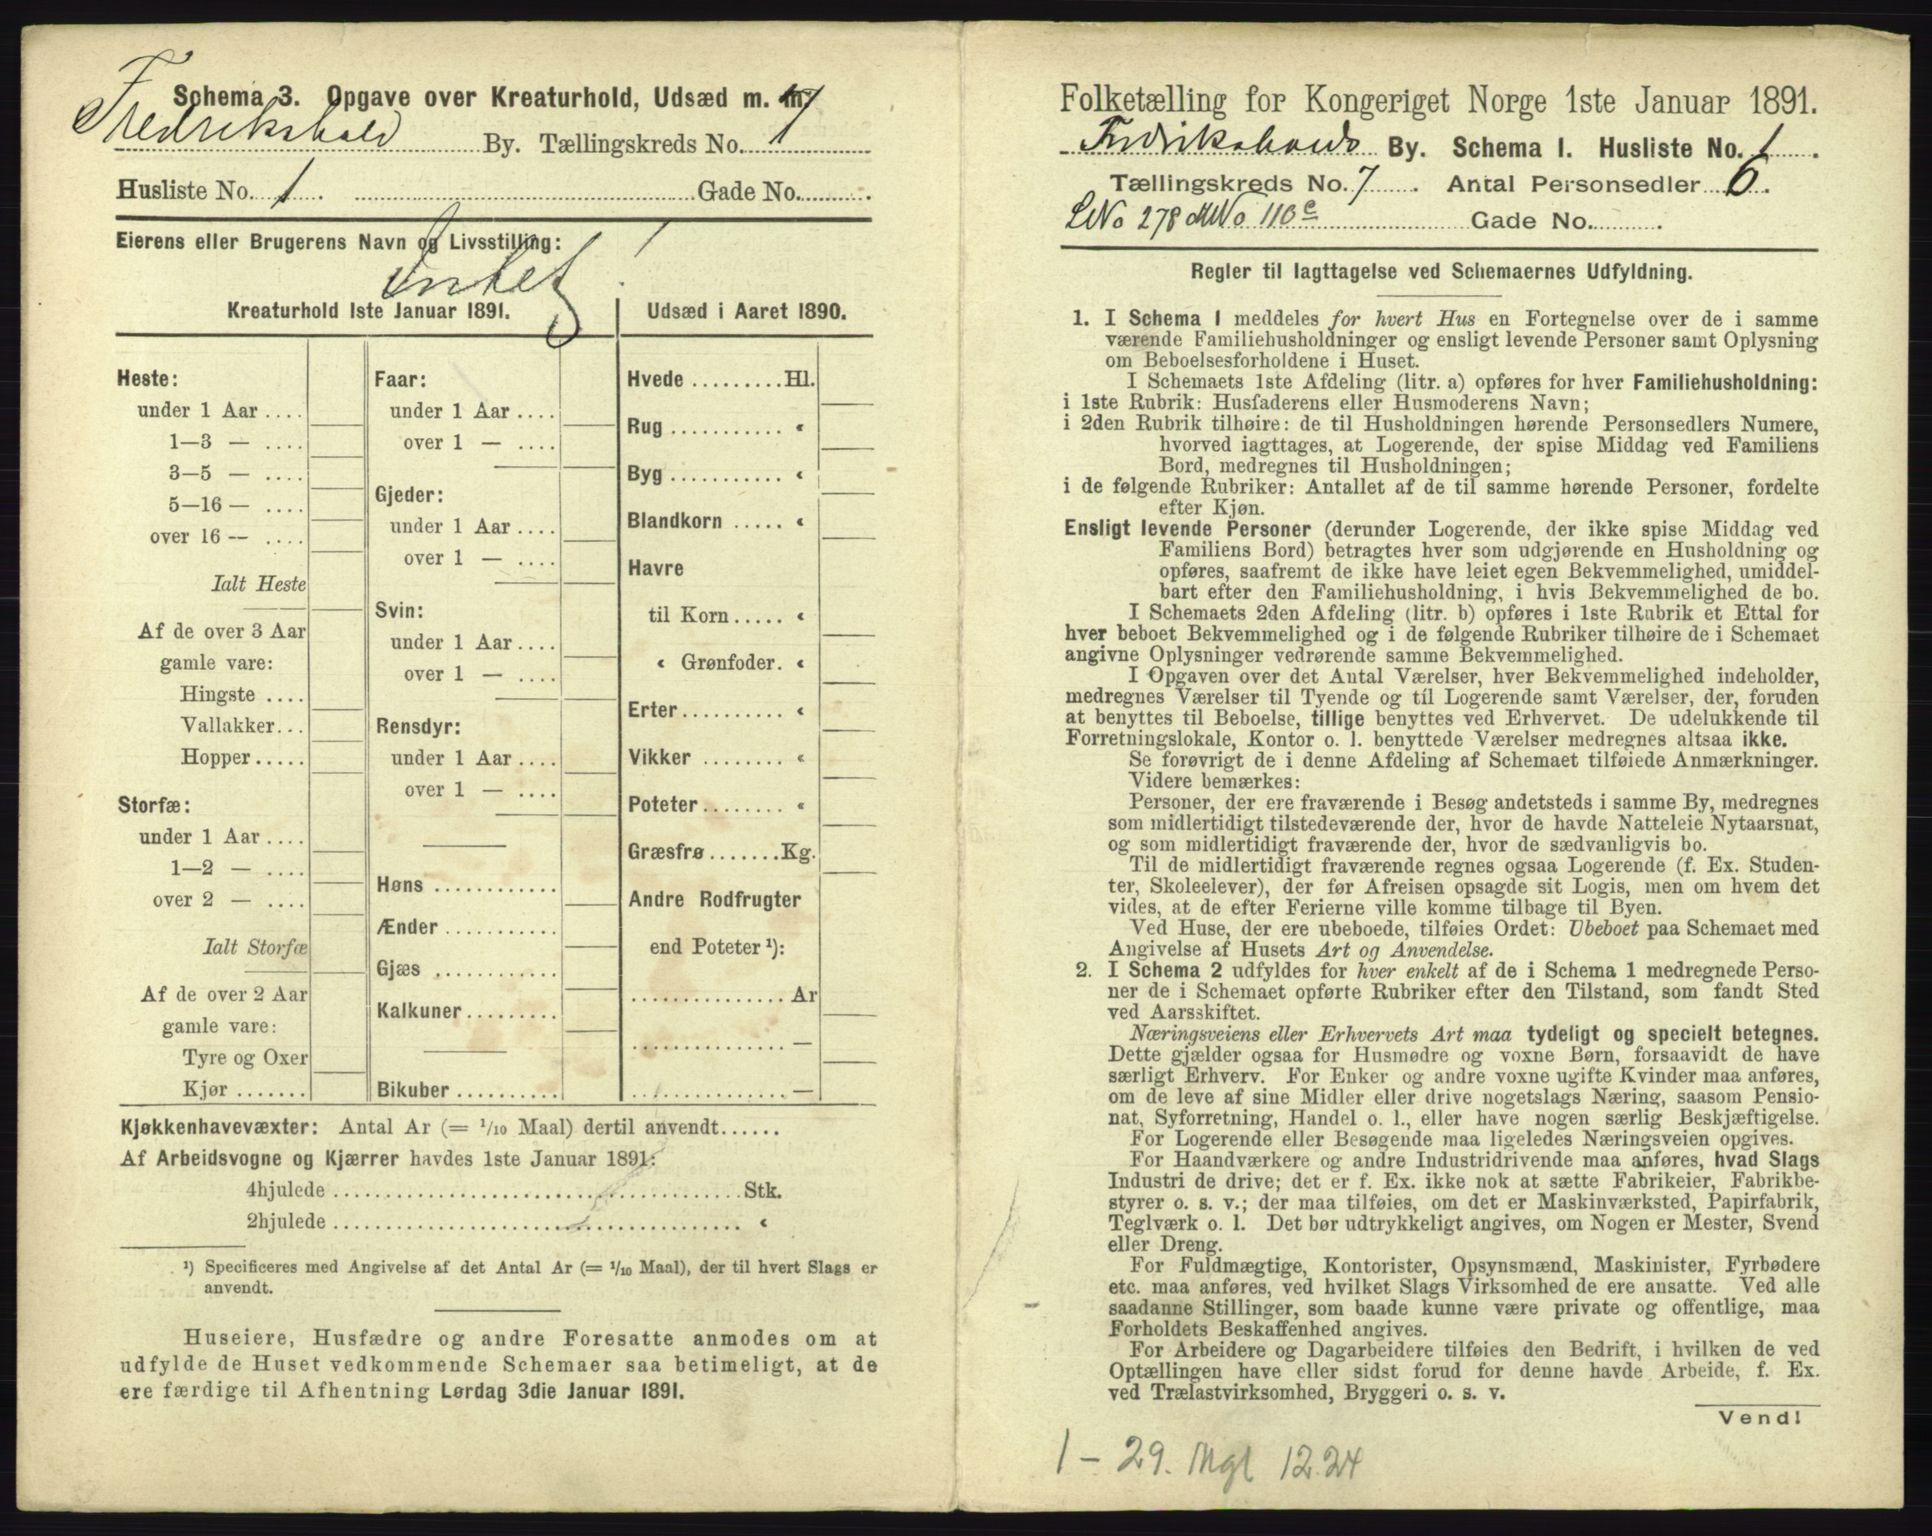 Schema 3. Opgave over Kreaturhold, Udsæd m. m.
Fredrikshald By. Tællingskreds No. 7
Husliste No. 1. Gade No.
Eierens eller Brugerens Navn og Livsstilling:
Intet!
Kreaturhold 1ste Januar 1891.
Heste:
under 1 Aar ....
1—3 — ....
3—5 — ....
5—16 — ....
over 16 — ....
Ialt Heste
Af de over 3 Aar
gamle vare:
Hingste ....
Vallakker...
Hopper.....
Storfæ:
under 1 Aar ....
1—2 — ....
over 2 — ....
Ialt Storfæ
Af de over 2 Aar
gamle vare:
Tyre og Oxer
Kjør .......
Faar:
under 1 Aar ....
over 1 — ....
Gjeder:
under 1 Aar ....
over 1 — ....
Svin:
under 1 Aar ....
over 1 — ....
Rensdyr:
under 1 Aar ....
over 1 — ....
Høns ............
Ænder ...........
Gjæs ............
Kalkuner.........
Bikuber ..........
Udsæd i Aaret 1890.
Hvede .........Hl.
Rug ........... «
Byg ........... «
Blandkorn ..... «
Havre
til Korn ..... «
« Grønfoder. «
Erter.......... «
Vikker ........ «
Poteter ........ «
Græsfrø .......Kg.
Andre Rodfrugter
end Poteter ¹):
............... Ar
............... —
............... —
Kjøkkenhavevæxter: Antal Ar (= 1/10 Maal) dertil anvendt......
Af Arbeidsvogne og Kjærrer havdes 1ste Januar 1891:
4hjulede ........................................ Stk.
2hjulede ........................................ «
¹) Specificeres med Angivelse af det Antal Ar (= 1/10 Maal), der til hvert Slags er
anvendt.
Huseiere, Husfædre og andre Foresatte anmodes om at
udfylde de Huset vedkommende Schemaer saa betimeligt, at de
ere færdige til Afhentning Lørdag 3die Januar 1891.
Folketælling for Kongeriget Norge 1ste Januar 1891.
Fredrikshalds By. Schema I. Husliste No. 1.
Tællingskreds No. 7. Antal Personsedler 6.
LNo 278 MNo 110c Gade No.
Regler til Iagttagelse ved Schemaernes Udfyldning.
1. I Schema 1 meddeles for hvert Hus en Fortegnelse over de i samme
værende Familiehusholdninger og ensligt levende Personer samt Oplysning
om Beboelsesforholdene i Huset.
I Schemaets 1ste Afdeling (litr. a) opføres for hver Familiehusholdning:
i 1ste Rubrik: Husfaderens eller Husmoderens Navn;
i 2den Rubrik tilhøire: de til Husholdningen hørende Personsedlers Numere,
hvorved iagttages, at Logerende, der spise Middag ved Familiens
Bord, medregnes til Husholdningen;
i de følgende Rubriker: Antallet af de til samme hørende Personer, fordelte
efter Kjøn.
Ensligt levende Personer (derunder Logerende, der ikke spise Middag ved
Familiens Bord) betragtes hver som udgjørende en Husholdning og
opføres, saafremt de ikke have leiet egen Bekvemmelighed, umiddel-
bart efter den Familiehusholdning, i hvis Bekvemmelighed de bo.
I Schemaets 2den Afdeling (litr. b) opføres i 1ste Rubrik et Ettal for
hver beboet Bekvemmelighed og i de følgende Rubriker tilhøire de i Schemaet
angivne Oplysninger vedrørende samme Bekvemmelighed.
I Opgaven over det Antal Værelser, hver Bekvemmelighed indeholder,
medregnes Værelser til Tyende og til Logerende samt Værelser, der, foruden
at benyttes til Beboelse, tillige benyttes ved Erhvervet. De udelukkende til
Forretningslokale, Kontor o. l. benyttede Værelser medregnes altsaa ikke.
Se forøvrigt de i denne Afdeling af Schemaet tilføiede Anmærkninger.
Videre bemærkes:
Personer, der ere fraværende i Besøg andetsteds i samme By, medregnes
som midlertidigt tilstedeværende der, hvor de havde Natteleie Nytaarsnat,
og som midlertidigt fraværende der, hvor de sædvanligvis bo.
Til de midlertidigt fraværende regnes ogsaa Logerende (f. Ex. Studen-
ter, Skoleelever), der før Afreisen opsagde sit Logis, men om hvem det
vides, at de efter Ferierne ville komme tilbage til Byen.
Ved Huse, der ere ubeboede, tilføies Ordet: Ubeboet paa Schemaet med
Angivelse af Husets Art og Anvendelse.
2. I Schema 2 udfyldes for hver enkelt af de i Schema 1 medregnede Perso-
ner de i Schemaet opførte Rubriker efter den Tilstand, som fandt Sted
ved Aarsskiftet.
Næringsveiens eller Erhvervets Art maa tydeligt og specielt betegnes.
Dette gjælder ogsaa for Husmødre og voxne Børn, forsaavidt de have
særligt Erhverv. For Enker og andre voxne ugifte Kvinder maa anføres,
om de leve af sine Midler eller drive nogetslags Næring, saasom Pensio-
nat, Syforretning, Handel o. l., eller have nogen særlig Beskjæftigelse.
For Logerende eller Besøgende maa ligeledes Næringsveien opgives.
For Haandværkere og andre Industridrivende maa anføres, hvad Slags
Industri de drive; det er f. Ex. ikke nok at sætte Fabrikeier, Fabrikbe-
styrer o. s. v.; der maa tilføies, om det er Maskinværksted, Papirfabrik,
Teglværk o. l. Det bør udtrykkeligt angives, om Nogen er Mester, Svend
eller Dreng.
For Fuldmægtige, Kontorister, Opsynsmænd, Maskinister, Fyrbødere
etc. maa anføres, ved hvilket Slags Virksomhed de ere ansatte. Ved alle
saadanne Stillinger, som baade kunne være private og offentlige, maa
Forholdets Beskaffenhed angives.
For Arbeidere og Dagarbeidere tilføies den Bedrift, i hvilken de ved
Optællingen have eller sidst forud for denne havde Arbeide, f. Ex.
ved Trælastvirksomhed, Bryggeri o. s. v.
Vend!
1 – 29. Mgl 12.24